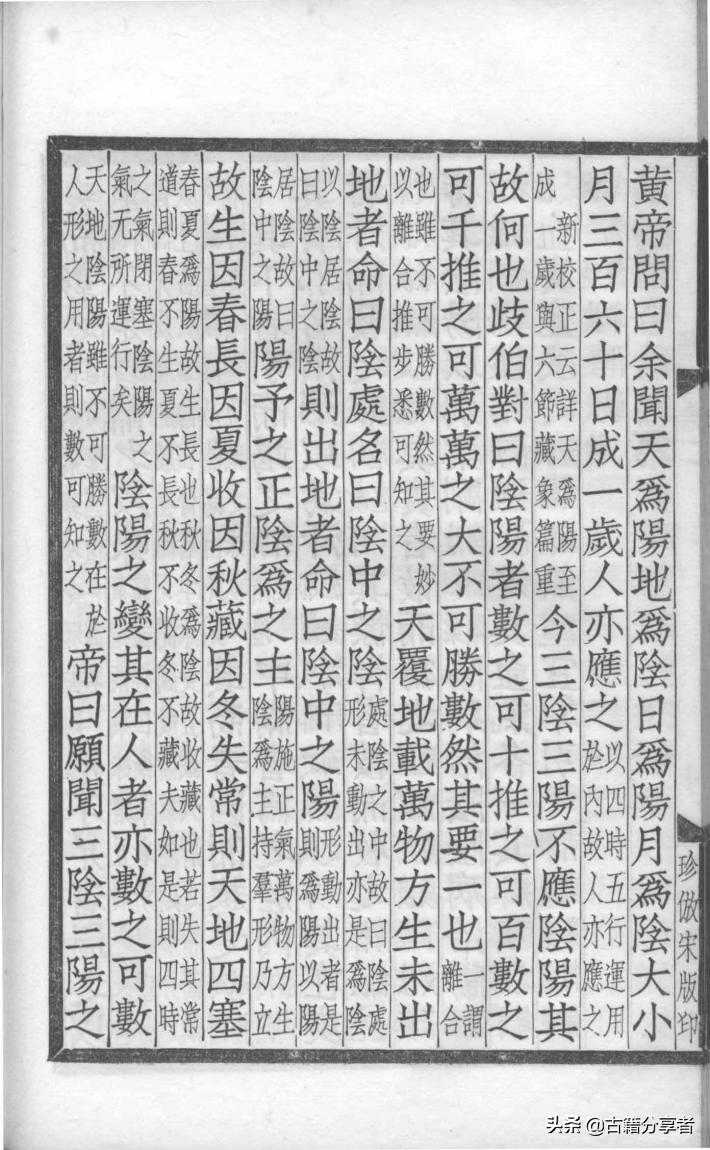 黄帝問曰余聞天爲陽地爲陰日爲陽月爲陰大小
月三百六十日成一歲人亦應之以四時五行運用於内故人亦應之
成一歲與六節藏象篇重新校正云詳天爲陽至今三陰三陽不應陰陽其
故何也歧伯對曰陰陽者數之可十推之可百數之
可千推之可萬萬之大不可勝數然其要一也一謂離合
也雖不可勝數然其要妙以離合推步悉可知之天覆地載萬物方生未出
地者命曰陰處名曰陰中之陰處陰之中故曰陰處形未動出亦是爲陰
以陰居陰故曰陰中之陰則出地者命曰陰中之陽形動出者是則爲陽以陽
居陰故曰陰中之陽陽予之正陰爲之主陽施正氣萬物方生陰爲主持羣形乃立
故生因春長因夏收因秋藏因冬失常則天地四塞
春夏爲陽故生長也秋冬爲陰故收藏也若失其常道則春不生夏不長秋不收冬不藏夫如是則四時
之氣閉塞陰陽之氣无所運行矣陰陽之變其在人者亦數之可數
天地陰陽雖不可勝數在於人形之用者則數可知之帝曰願聞三陰三陽之
珍倣宋版印
头条 @古籍分享者